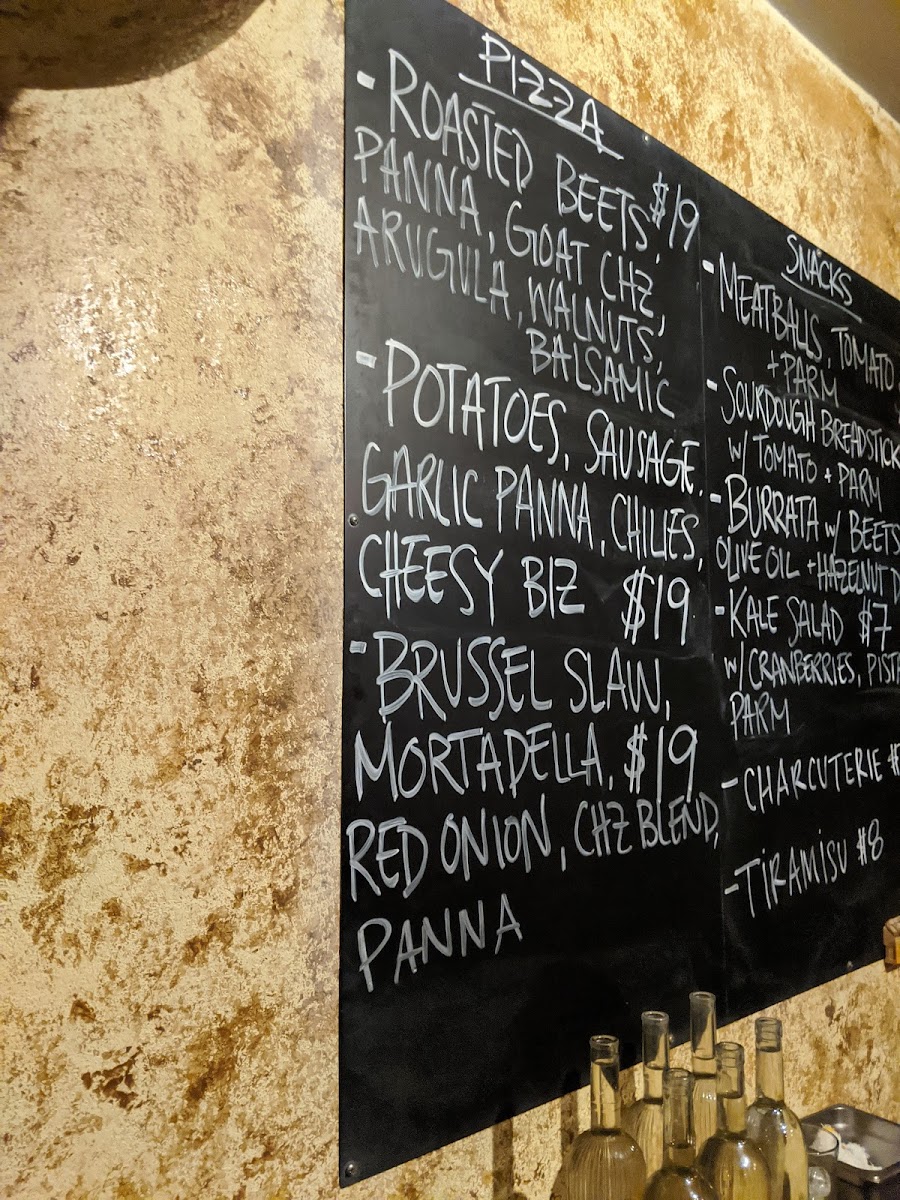 PIZZA
- ROASTED BEETS, $19
PANNA, GOAT CHZ,
ARUGULA, WALNUTS,
BALSAMIC
- POTATOES, SAUSAGE,
GARLIC PANNA, CHILIES,
CHEESY BIZ $19
- BRUSSEL SLAW,
MORTADELLA, $19
RED ONION, CHZ BLEND,
PANNA
SNACKS
- MEATBALLS, TOMATO
+ PARM
- SOURDOUGH BREADSTICK
W/ TOMATO + PARM
- BURRATA W/ BEETS
OLIVE OIL + HAZELNUT D
- KALE SALAD $7
W/ CRANBERRIES, PIST
PARM
- CHARCUTERIE
- TIRAMISU $8